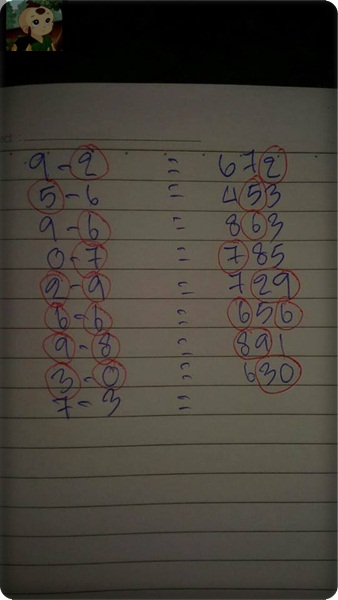 9 - 2 = 672
5 - 6 = 453
9 - 6 = 863
0 - 7 = 785
2 - 9 = 729
6 - 6 = 656
9 - 8 = 891
3 - 0 = 630
7 - 3 =